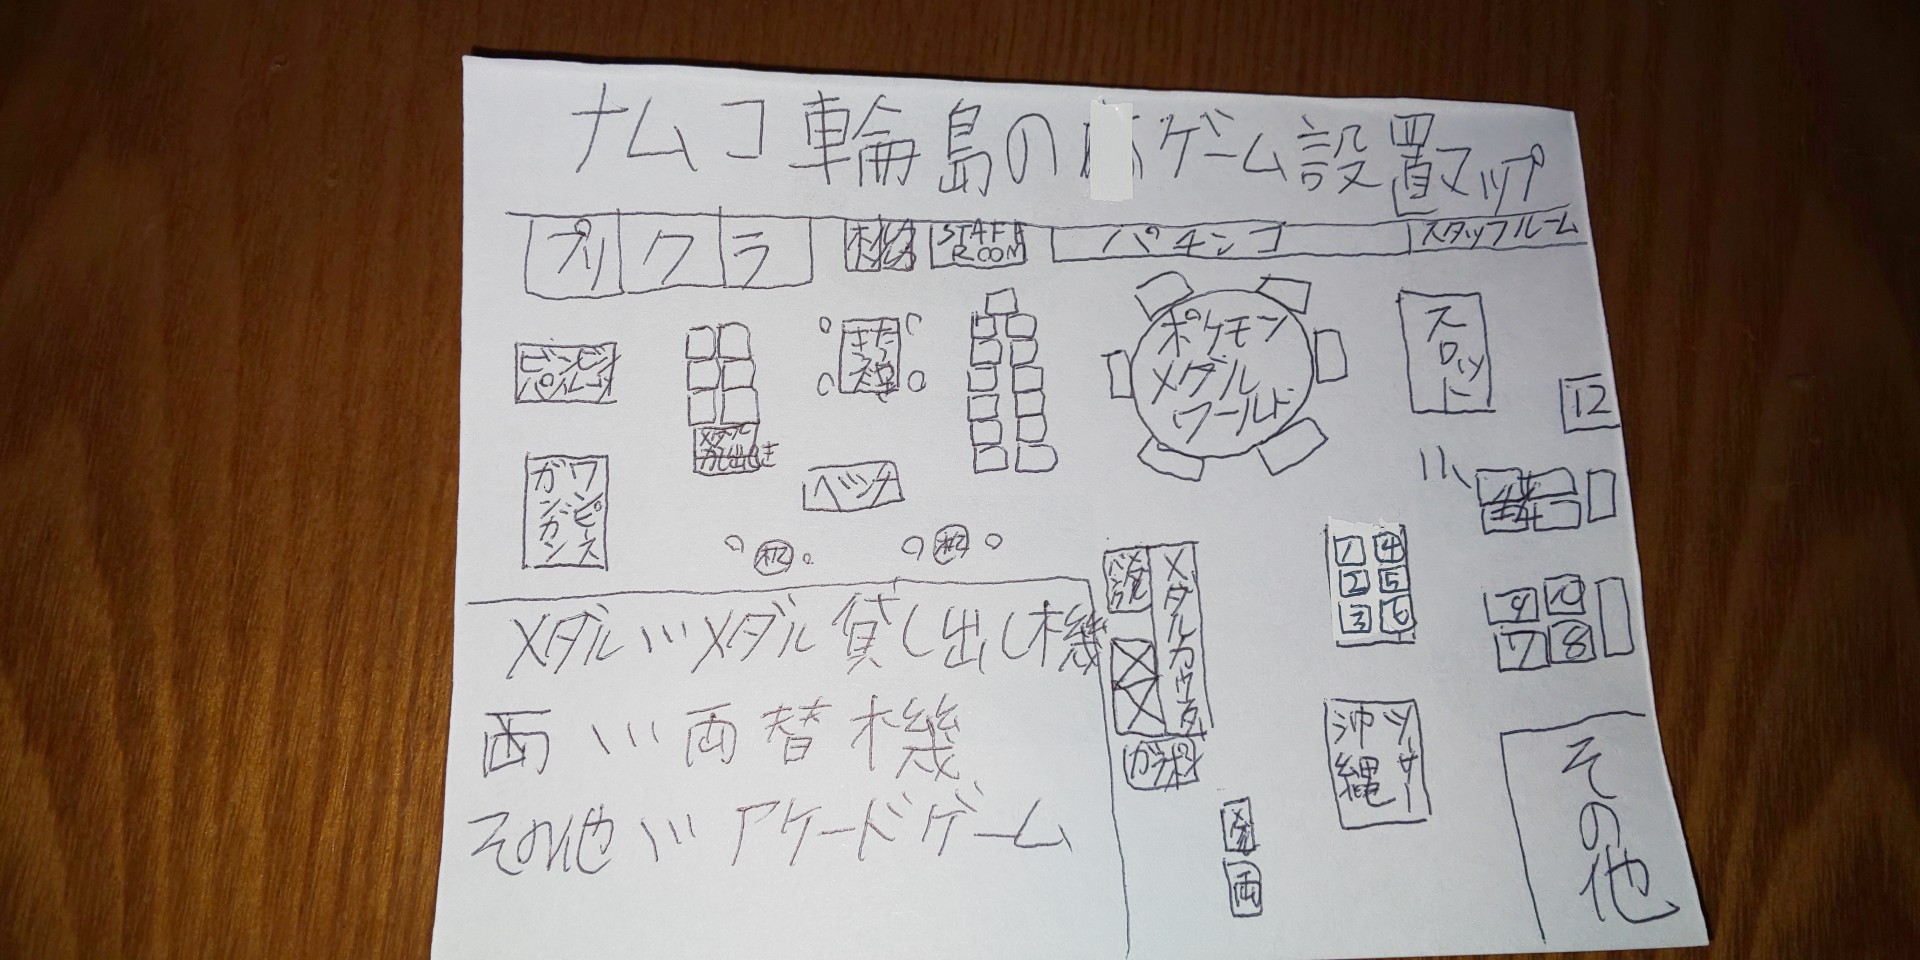 ナムコ輪島の ゲーム設置マップ
プリクラ
STAFF ROOM
パチンコ
スタッフルーム
ポケモン
メダル
ワールド
スロット
12
メダル
貸し出し
ベンチ
ワンピース
ガンガン
1 4
2 5
3 6
9 10
7 8
メダルカウンター
メダル…メダル貸し出し機
両…両替機
その他…アケードゲーム
沖縄
ツーサー
両
その他